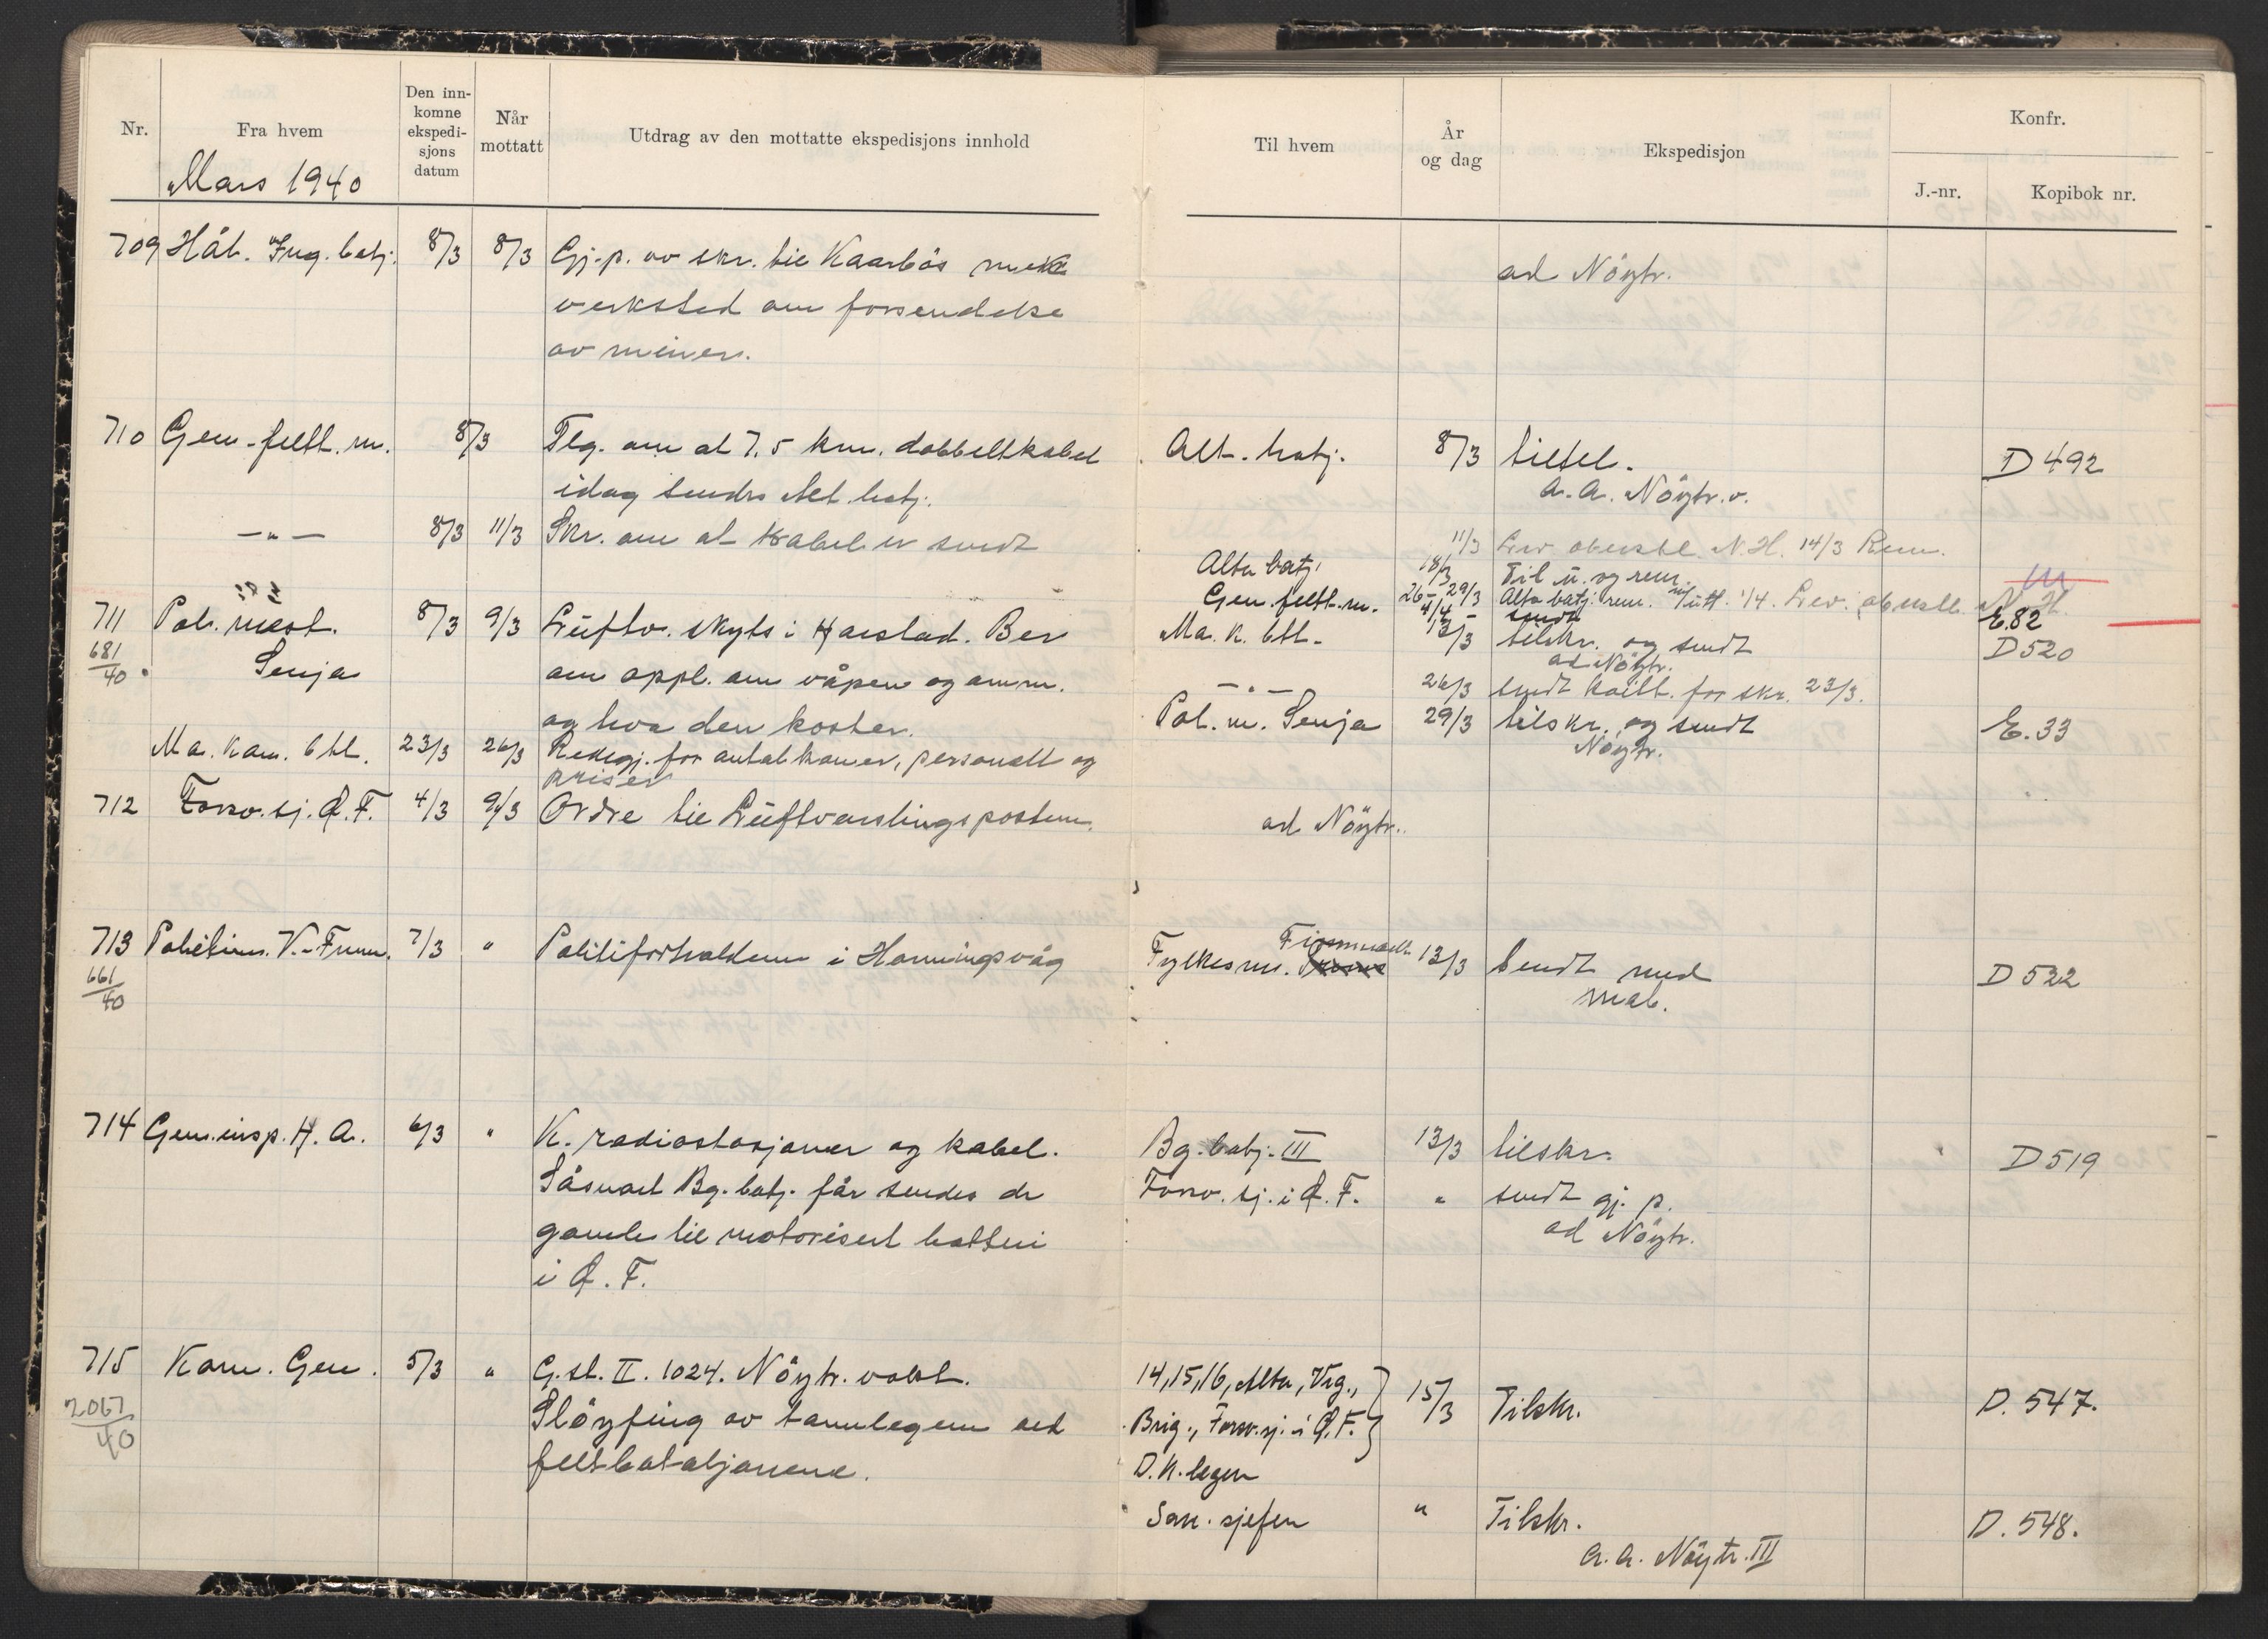 Nr.
Fra hvem
Den inn-
komne
ekspedi-
sjons
datum
Når
mottatt
Utdrag av den mottatte ekspedisjons innhold
Til hvem
År
og dag
Ekspedisjon
Konfr.
J.-nr.
Kopibok nr.
Mars 1940
709 Hål. Ing. batj. 8/3 8/3 Gj.p. av skr. til Kaarbös mek ad Nöytr.
verksted om forsendelse
av miner.
710 Gen.-feltt.m. 8/3 Tlg. om at 7,5 km. dobbeltkabel Alt. batj. 8/3 tiltel. D 492
idag sendes Alt. batj. a.a. Nöytr.v.
—"— 8/3 11/3 Skr. om at kabel er sendt 11/3 Lev. oberstl. N.H. 14/3 Rem.
Alta batj. 18/3 Til u. og rem.
Gen. feltt.m. 26-29/3 Alta batj. rem. 1/4. Lev. oberstl. N.H.
4/4 - sendt E.82
711 Pol. mest. 8/3 9/3 Luftv. skyts i Harstad. Ber Ma. K. btl. 13/3 tilskr. og sendt D 520
681/40 Senja om oppl. om våpen og amm. ad Nöytr.
—"— 26/3 sendt kvitt. for skr. 23/3.
og hva den koster. Pol. m. Senja 29/3 tilskr. og sendt E. 33
Ma. Kan. btl. 23/3 26/3 Redegj. for antal kaner, personell og Nöytr.
priser
712 Forsv. sj. Ø.F. 4/3 9/3 Ordre til Luftvarslingsposten. ad Nöytr.
713 Politim. V.-Finnm. 7/3 " Politiforholdene i Honningsvåg Fylkesm. Finnmark 13/3 Sendt med D 522
661/40 mab.
714 Gen.insp. H.A. 6/3 " K. radiostasjoner og kabel. Bg. batj. III 13/3 tilskr. D 519
Såsnart Bg. batj. får sendes de Forsv. sj. i Ø.F. " sendt gj. p.
gamle til motorisert batteri ad Nöytr.
i Ø.F.
715 Kom. Gen. 5/3 " G.st. II. 1024. Nöytr. vakt. 14,15,16, Alta, Vrg., 15/3 Tilskr. D. 547.
2067/40 Slöyfing av tannlegen ved Brig., Forsv.sj. i Ø.F.
feltbataljonene. D.K.legen
San. sjefen " Tilskr. D. 548.
a.a. Nöytr. III